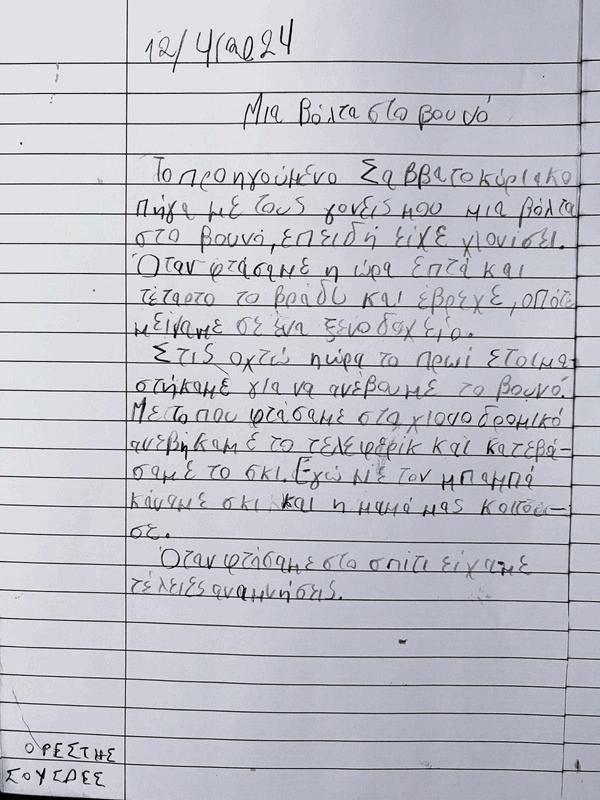 12/4/2024
Μια βόλτα στο βουνό
Το προηγούμενο Σαββατοκύριακο
πήγα με τους γονείς μου μια βόλτα
στο βουνό, επειδή είχε χιονίσει.
Όταν φτάσαμε η ώρα επτά και
τέταρτο το βράδυ και έβρεχε, οπότε
μείναμε σε ένα ξενοδοχείο.
Στις οχτώ η ώρα το πρωί ετοιμα-
στήκαμε για να ανέβουμε το βουνό.
Με το που φτάσαμε στο χιονοδρομικό
ανεβήκαμε το τελεφερίκ και κατεβά-
σαμε το σκι. Εγώ με τον μπαμπά
κάναμε σκι και η μαμά μας κοιτού-
σε.
Όταν φτάσαμε στο σπίτι είχαμε
τέλειες αναμνήσεις.
ΟΡΕΣΤΗΣ